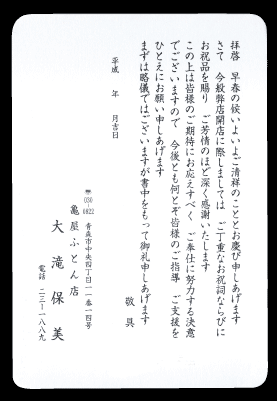 拝啓　早春の候いよいよご清祥のこととお慶び申しあげます
さて　今般弊店開店に際しましては　ご丁重なお祝詞ならびに
お祝品を賜り　ご芳情のほど深く感謝いたします
この上は皆様のご期待にお応えすべく　ご奉仕に努力する決意
でございますので　今後とも何とぞ皆様のご指導　ご支援を
ひとえにお願い申しあげます
まずは略儀ではございますが書中をもって御礼申しあげます
敬具
平成　年　月吉日
〒030-0822　青森市中央四丁目一一番一四号
亀屋ふとん店
大滝保美
電話　二三―一八八九